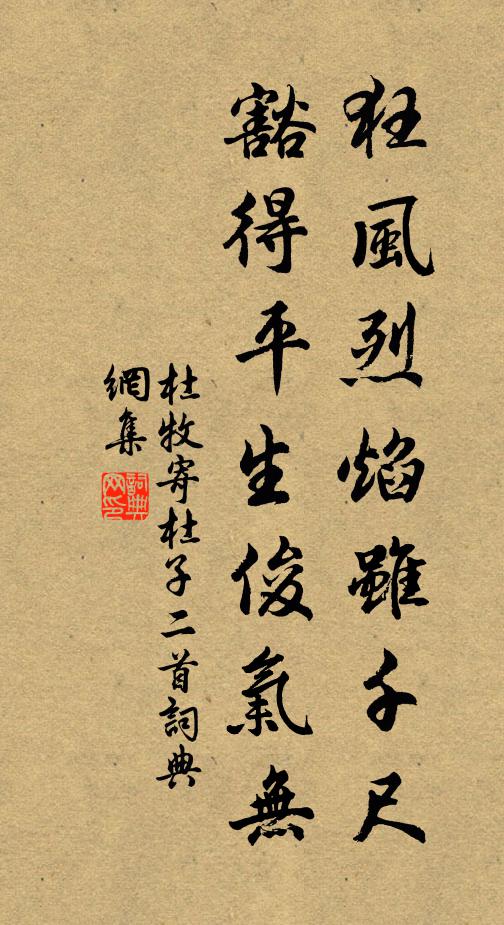 狂風烈焰雖千尺
豁得平生俊氣無
杜牧寄杜子二首詞典
網集
詞典
网印